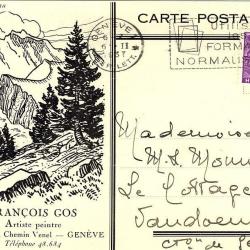 CARTE POSTA
GENÈVE
II
37
UTILIS
FORM
NORMALIS
RANÇOIS GOS
Artiste peintre
Chemin Venel — GENÈVE
Téléphone 48.684
Mademoise
M. S. Monn
Le Cottage
Vandoeu
Cton de